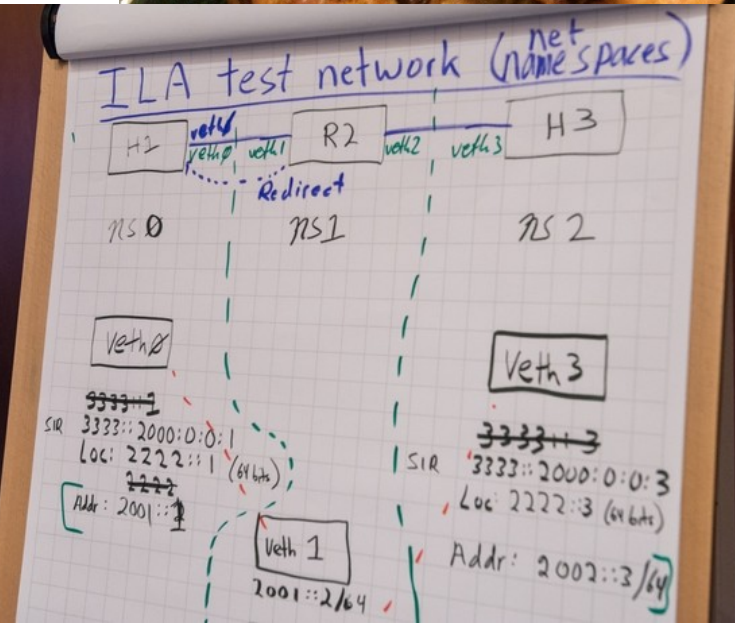 ILA test network (net namespaces)
H1 veth0 veth0 veth1 R2 veth2 veth3 H3
Redirect
ns0 ns1 ns2
Veth0
3333::1
SIR 3333::2000:0:0:1
Loc: 2222::1 (64 bits)
2222
Addr: 2001::1
Veth 1
2001::2/64
Veth 3
3333::3
SIR 3333::2000:0:0:3
Loc 2222::3 (64 bits)
Addr: 2002::3/64